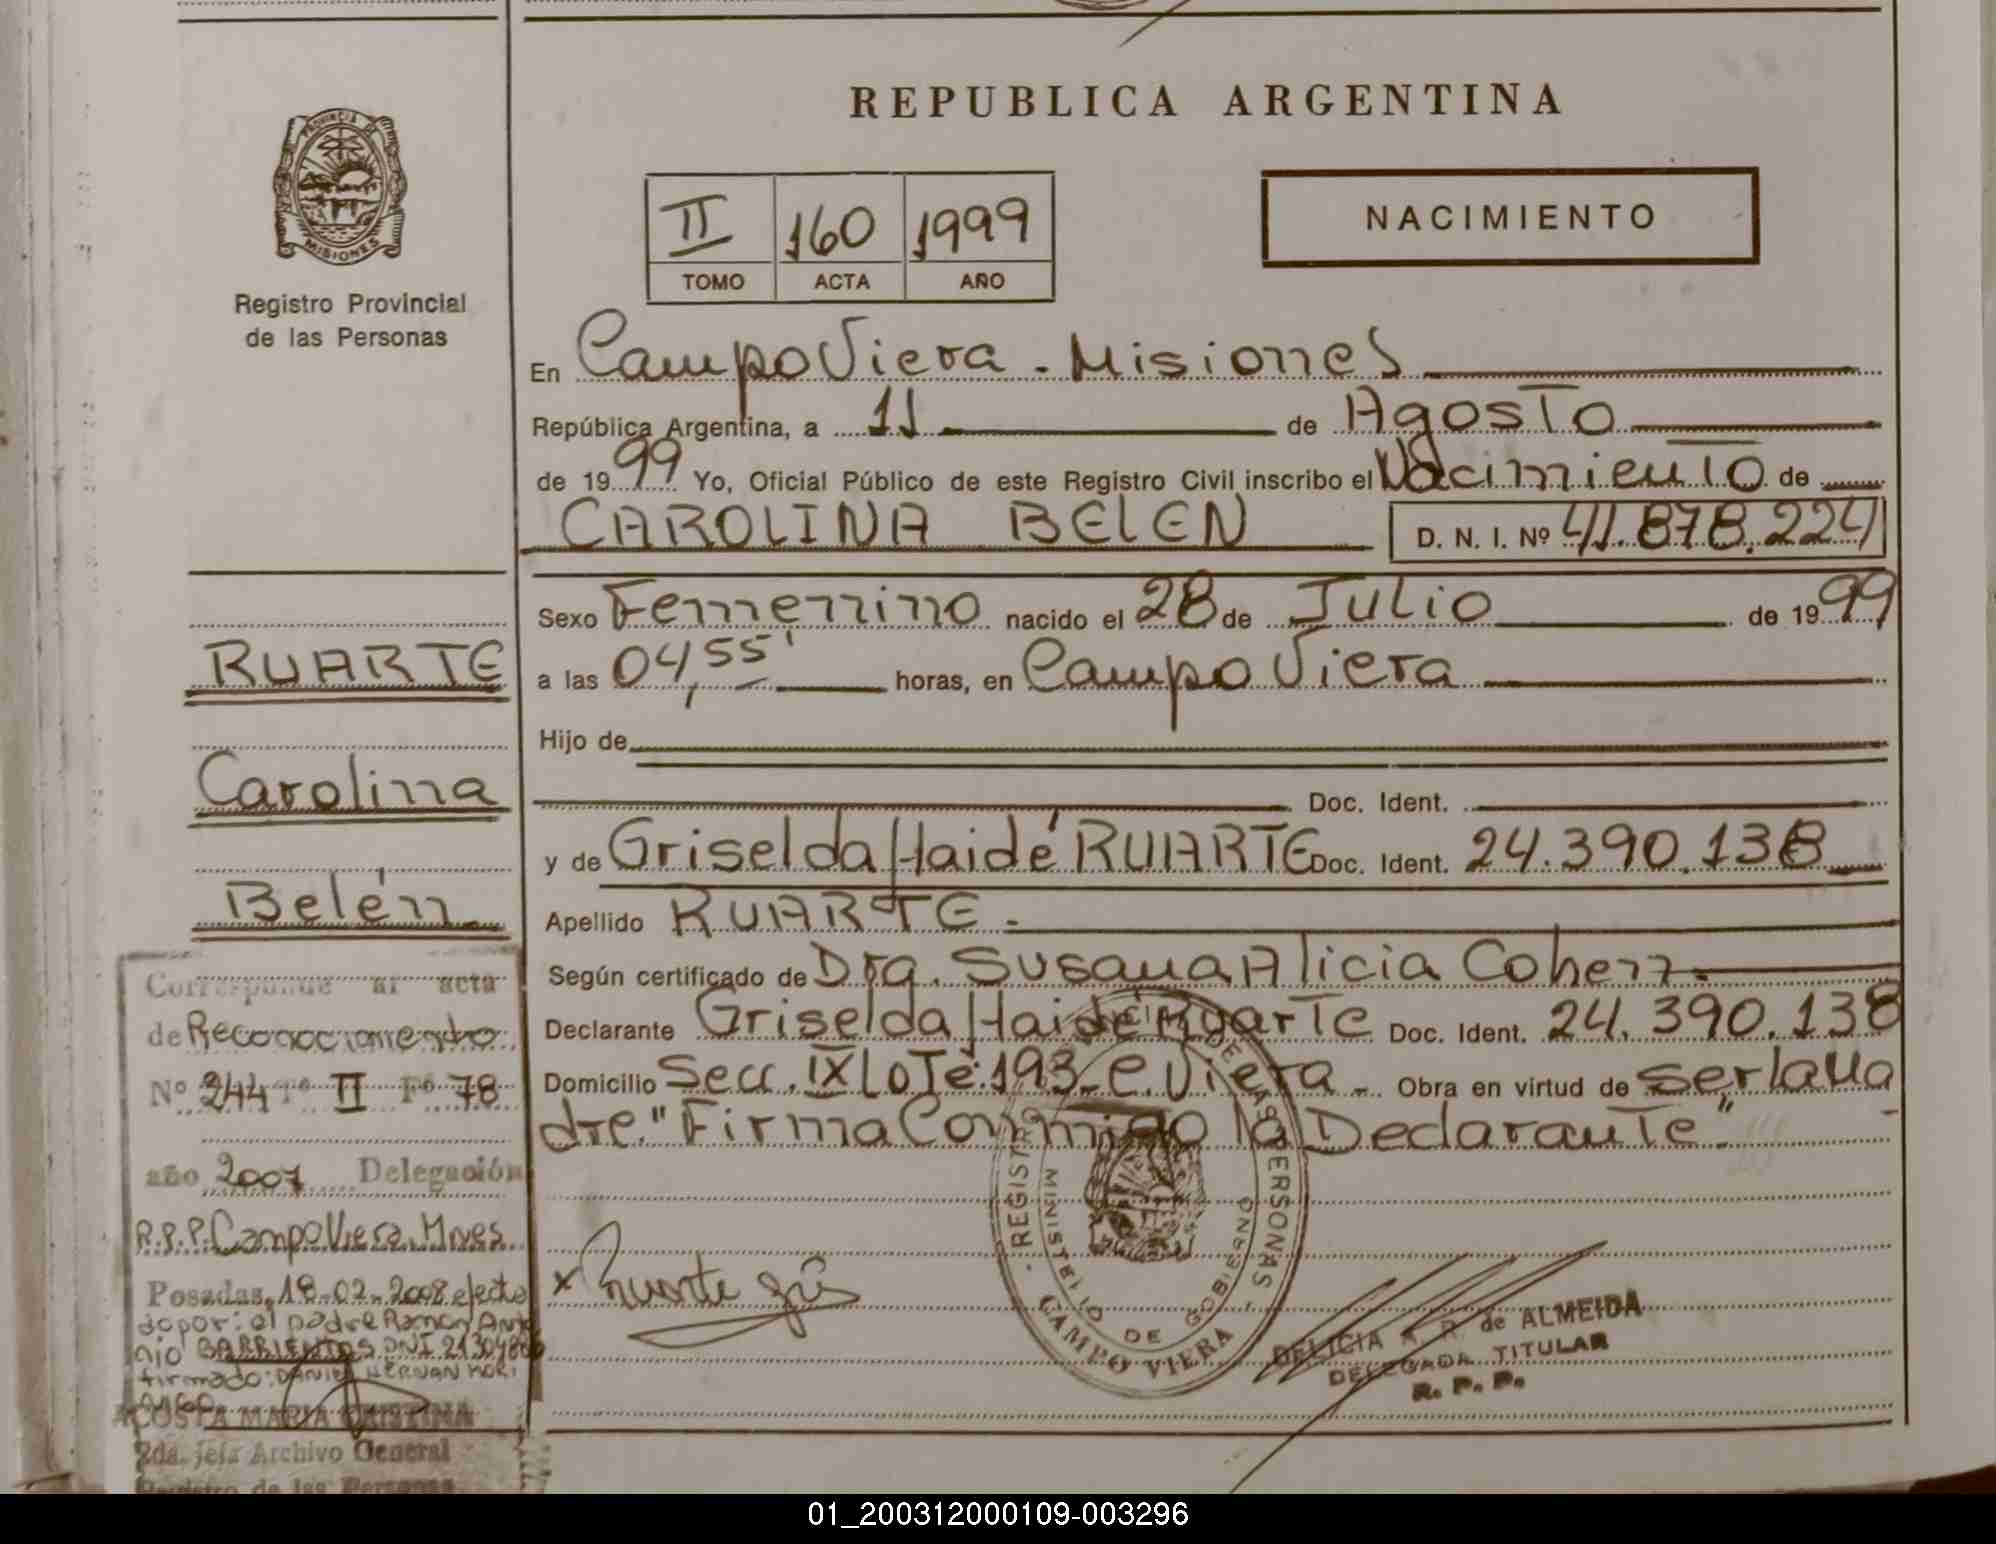 REPUBLICA ARGENTINA
PROVINCIA DE
MISIONES
Registro Provincial
de las Personas
II 160 1999
TOMO ACTA AÑO
NACIMIENTO
En Campo Viera - Misiones
República Argentina, a 11 de Agosto
de 1999 Yo, Oficial Público de este Registro Civil inscribo el Nacimiento de
CAROLINA BELEN D. N. I. Nº 41.878.224
Sexo Femenino nacido el 28 de Julio de 1999
a las 04,55' horas, en Campo Viera
Hijo de
Doc. Ident.
y de Griselda Haidé RUARTE Doc. Ident. 24.390.138
Apellido RUARTE.
Según certificado de Dra. Susana Alicia Cohen
Declarante Griselda Haidé Ruarte Doc. Ident. 24.390.138
Domicilio Secc. IX Lote 193 - C. Viera - Obra en virtud de ser la Ma
dre. "Firma Conmigo la Declarante"
RUARTE
Carolina
Belén
Corresponde al acta
de Reconocimiento
Nº 244 Tº II Fº 78
año 2007 Delegación
R.P.P. Campo Viera. Mnes.
Posadas, 18-02-2008 efectua
do por: el padre Ramon Anto
nio BARRIENTOS DNI
firmado: DANIEL HERNAN
ACOSTA MARIA CRISTINA
2da. Jefa Archivo General
Registro de las Personas
x Ruarte
REGISTRO PERSONAS
MINISTERIO DE GOBIERNO
CAMPO VIERA
DELICIA R. de ALMEIDA
DELEGADA TITULAR
R. P. P.
01_200312000109-003296